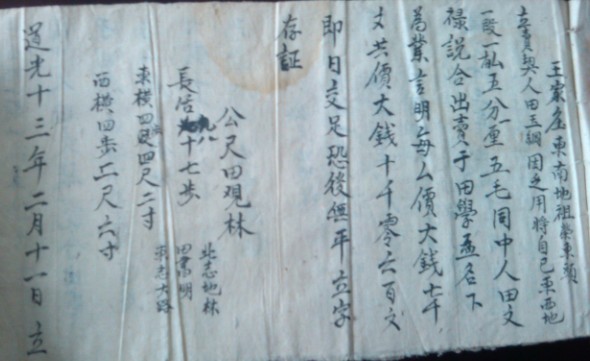 王家屋東南地祖塋東頭
立賣契人田玉調因乏用將自己東西地
一段一畝五分一厘五毛同中人田文
祿說合出賣于田學孟名下
為業言明每畝價大錢七千
文共價大錢十千零六百文
即日交足恐後無憑立字
存証
公尺田現林
長活八十七步
東橫四步四尺二寸
西橫四步二尺六寸
北志地林
田富明
南志大路
道光十三年二月十一日立